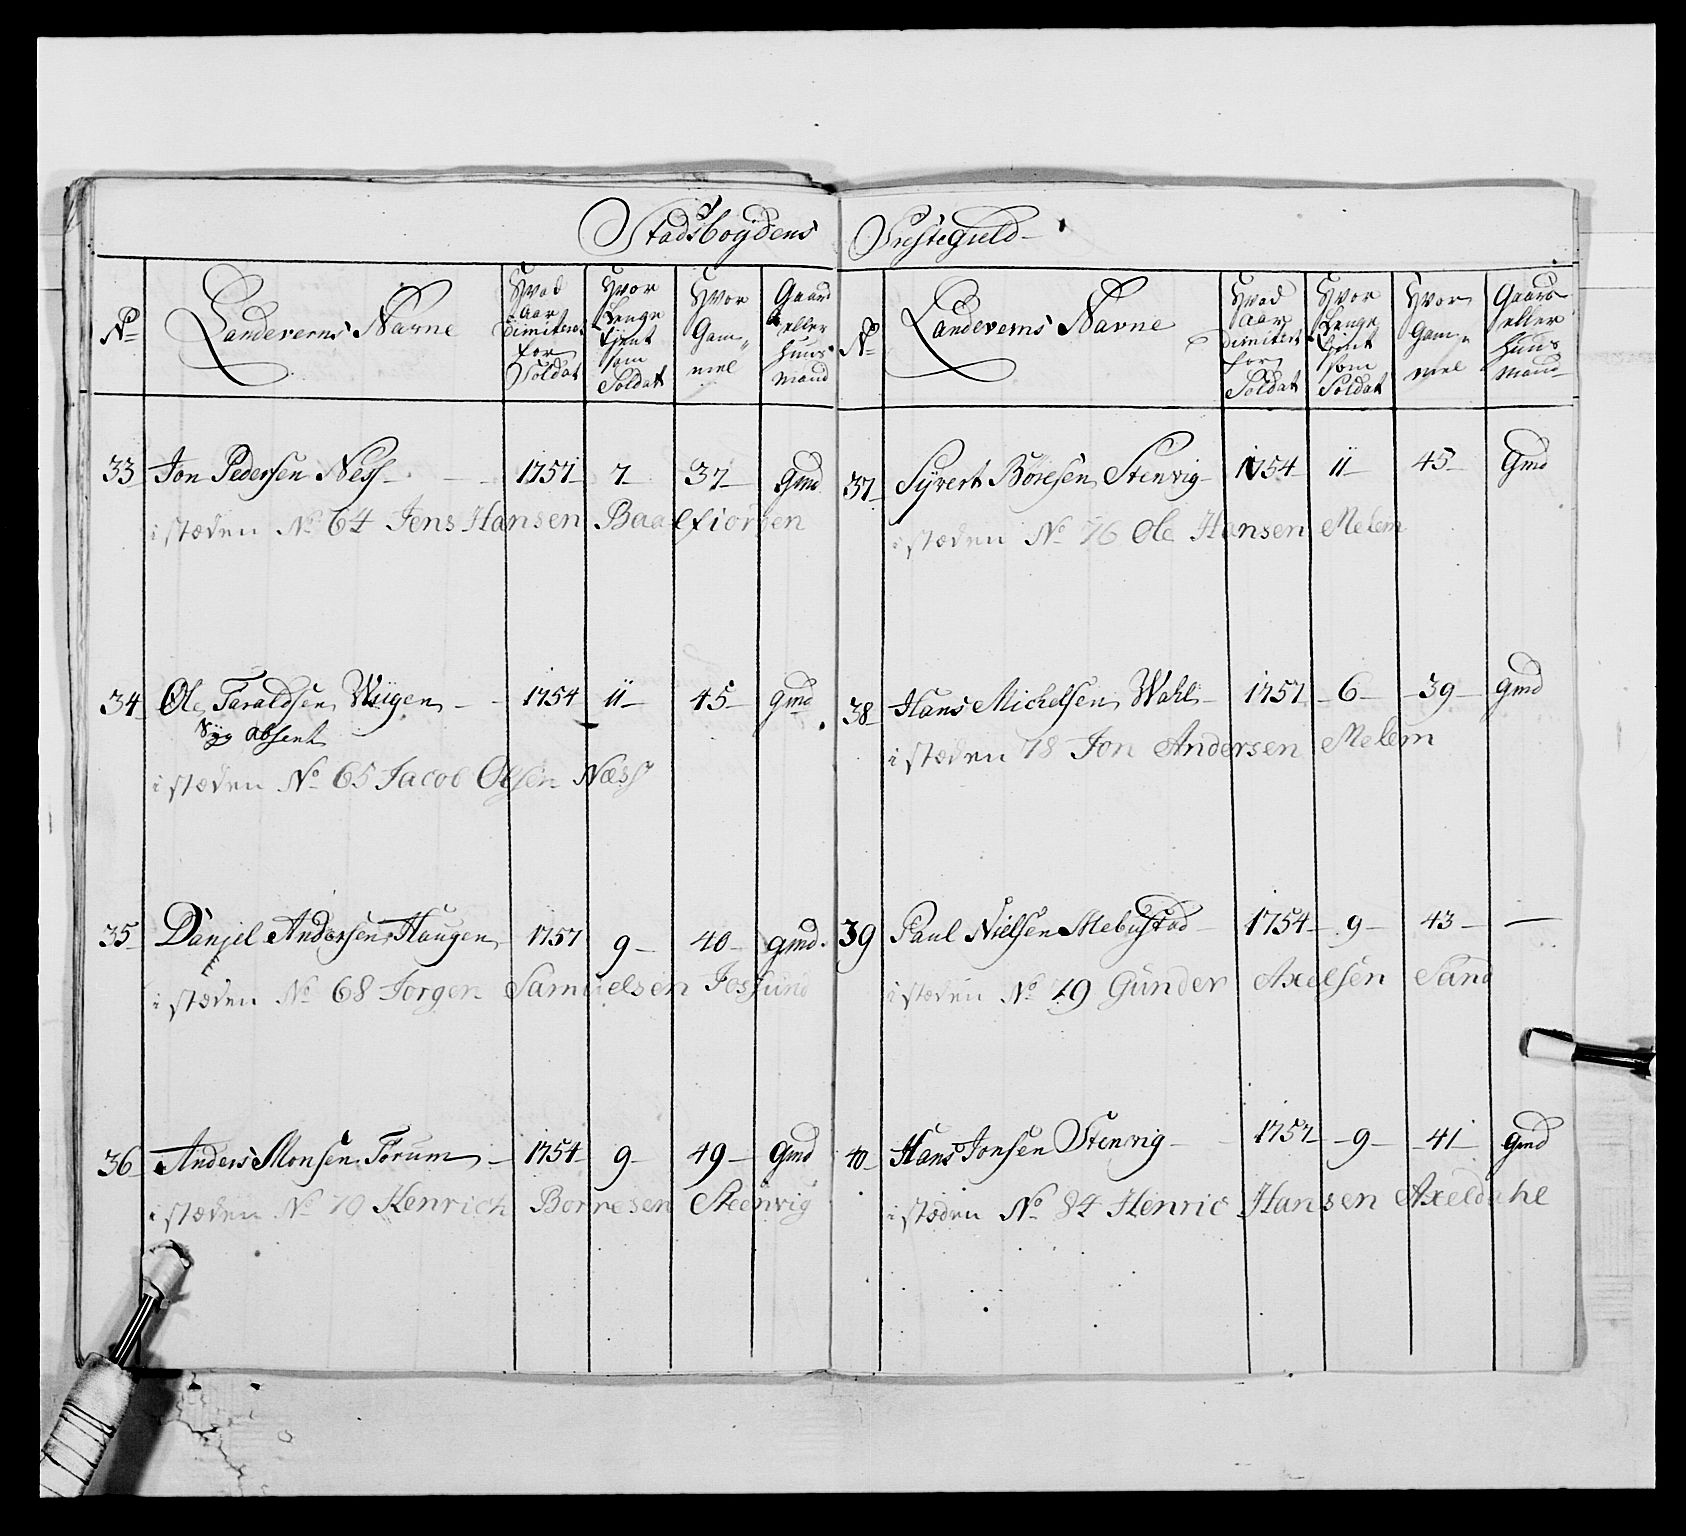 Stadsboÿdens Prestegield
No
Landeverns Navne
Hvad Aar Dimiteret for Soldat
Hvor Lenge tjent som Soldat
Hvor Gam„ mel
Gaard eller Huus mand
33 Jon Pedersen Ness 1757 7 37 Gmd
i stæden No 64 Jens Hansen
34 Ole Taraldsen Wiigen 1754 11 45 gmd
Sÿg absent
i stæden No 65 Jacob Olsen Næss
35 Danjel Andersen Haugen 1757 9 40 gmd.
i stæden No 68 Jorgen Samuelsen Josfund
36 Anders Monsen Forum 1754 9 49 Gmd
i stæden No 70 Henrich Borresen Steenvig
No
Landeverns Navne
Hvad Aar Dimitert for Soldat
Hvor Lenge tjent som Soldat
Hvor Gam„ mel
Gaard eller Huus Mand
37 Syvert Böresen Stenvig 1754 11 45 Gmd
i stæden No 76 Ole Hansen Melem
38 Hans Michelsen Wahl 1757 6 39 gmd
i stæden 78 Jon Andersen Melem
39 Paul Nielsen Mebustad 1754 9 43 —
i stæden No 79 Gunder Axelsen Sand
40 Hans Jonsen Stenvig 1757 9 41 Gmd
i stæden No 84 Henric Hansen Axeldahl